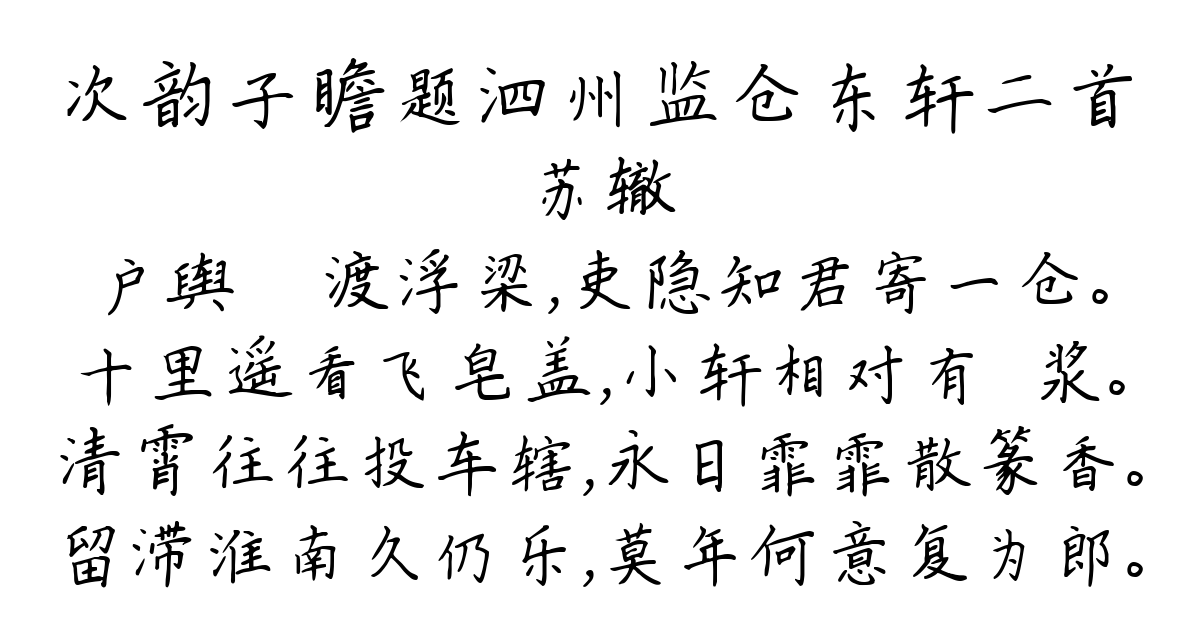 次韵子瞻题泗州监仓东轩二首
苏辙
户舆 渡浮梁,吏隐知君寄一仓。
十里遥看飞皂盖,小轩相对有 浆。
清霄往往投车辖,永日霏霏散篆香。
留滞淮南久仍乐,莫年何意复为郎。